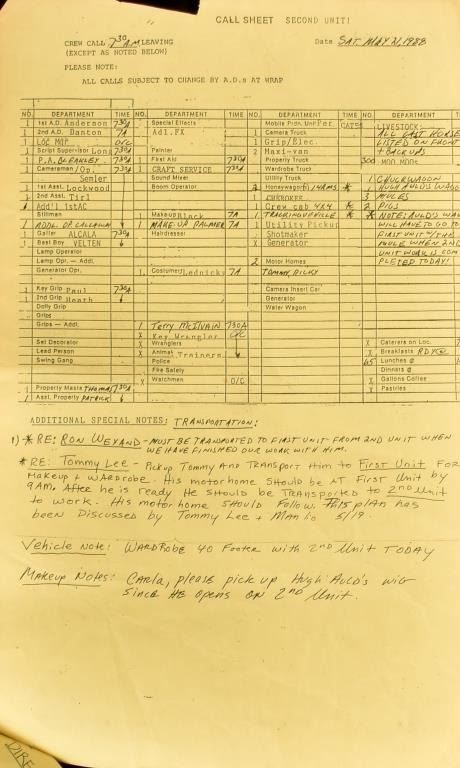 CALL SHEET SECOND UNIT!
CREW CALL 7:30 AM LEAVING
(EXCEPT AS NOTED BELOW)
Date SAT. MAY 21, 1988
PLEASE NOTE:
ALL CALLS SUBJECT TO CHANGE BY A.D.s AT WRAP
NO. DEPARTMENT TIME NO. DEPARTMENT TIME NO. DEPARTMENT TIME NO. DEPARTMENT
1 1st A.D. Anderson 730A Special Effects Mobile Prdn. Unit Per CATES LIVESTOCK:
1 2nd A.D. Danton 7A Adl.FX Camera Truck ALL CAST HORSES
1 LOC MGR O/C 1 Grip/Elec. LISTED ON FRONT
1 Script Supervisor Long 730A Painter 2 Maxi-van + BACKUPS
1 P.A. BLEAKLEY First Aid 730A Property Truck 300 MOO MOOS
1 Cameraman/Op. 730A CRAFT SERVICE 730A Wardrobe Truck
Semler Sound Mixer Utility Truck 1 CHUCKWAGON
1 1st Asst. Lockwood Boom Operator 2 Honeywagon 1 HUGH AULD'S WAGON
1 2nd Asst. Tirl 1 CHEROKEE 3 MULES
1 Add'l 1stAC 1 Crew cab 4X4 * 2 PIGS
Stillman 1 Makeup Black 7A 1 * NOTE: AULD'S WAGON
1 ADDL. OP. CALAHAN 1 MAKE-UP PALMER 7A 1 Utility Pickup WILL HAVE TO GO TO
1 Gaffer ALCALA 730A Hairdresser Shotmaker FIRST UNIT w/THE
1 Best Boy VELTEN X Generator MULE WHEN 2ND
Lamp Operator UNIT WORK IS COM-
Lamp Opr. — Addl. 2 Motor Homes PLETED TODAY!
Generator Opr. 1 Costumer Lednicky 7A TOMMY, RICKY
1 Key Grip Paul 730A Camera Insert Car
1 2nd Grip Heath Generator
Dolly Grip Water Wagon
Grips
Grips — Addl. 1 Terry McIlvain 730A
X Key Wrangler O/C
Set Decorator X Wranglers X Caterers on Loc.
Lead Person X Animal Trainers X Breakfasts RDY@
Swing Gang Police 65 Lunches @
Fire Safety Dinners @
X Watchmen O/C X Gallons Coffee
1 Property Master THOMAS 730A X Pastries
1 Asst. Property PATRICK
ADDITIONAL SPECIAL NOTES: TRANSPORTATION:
1) * RE: RON WEYAND - MUST BE TRANSPORTED TO FIRST UNIT FROM 2ND UNIT WHEN
WE HAVE FINISHED OUR WORK WITH HIM.
* RE: Tommy Lee - Pickup Tommy and Transport Him to First Unit FOR
Makeup + WARDROBE. His motorhome Should be AT First Unit by
9AM. After he is ready He should be Transported to 2nd Unit
to work. His motorhome SHOULD Follow. This plan has
been Discussed by Tommy Lee + Manlio 5/19.
Vehicle Note: WARDROBE 40 FOOTER with 2nd Unit TODAY
Makeup Notes: CARLA, please pick up Hugh Auld's wig
since HE opens on 2nd Unit.